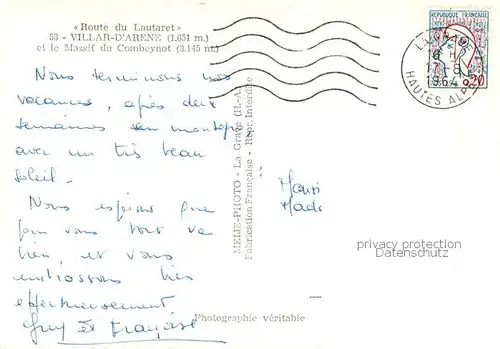 «Route du Lautaret»
53 - VILLAR-D'ARENE (1.651 m)
et le Massif du Combeynot (3.145 m)
Nous terminons nos
vacances, après deux
semaines en montagne
avec un très beau
soleil.
Nous espérons que
pour vous tout va
bien, et vous
embrassons bien
affectueusement
Guy et Françoise
MELIE-PHOTO - La Grave (H.-A.)
Fabrication Française - Repr. Interdite
Photographie véritable
REPUBLIQUE FRANCAISE
0,20
1964
HAUTES ALPES
privacy protection
Datenschutz